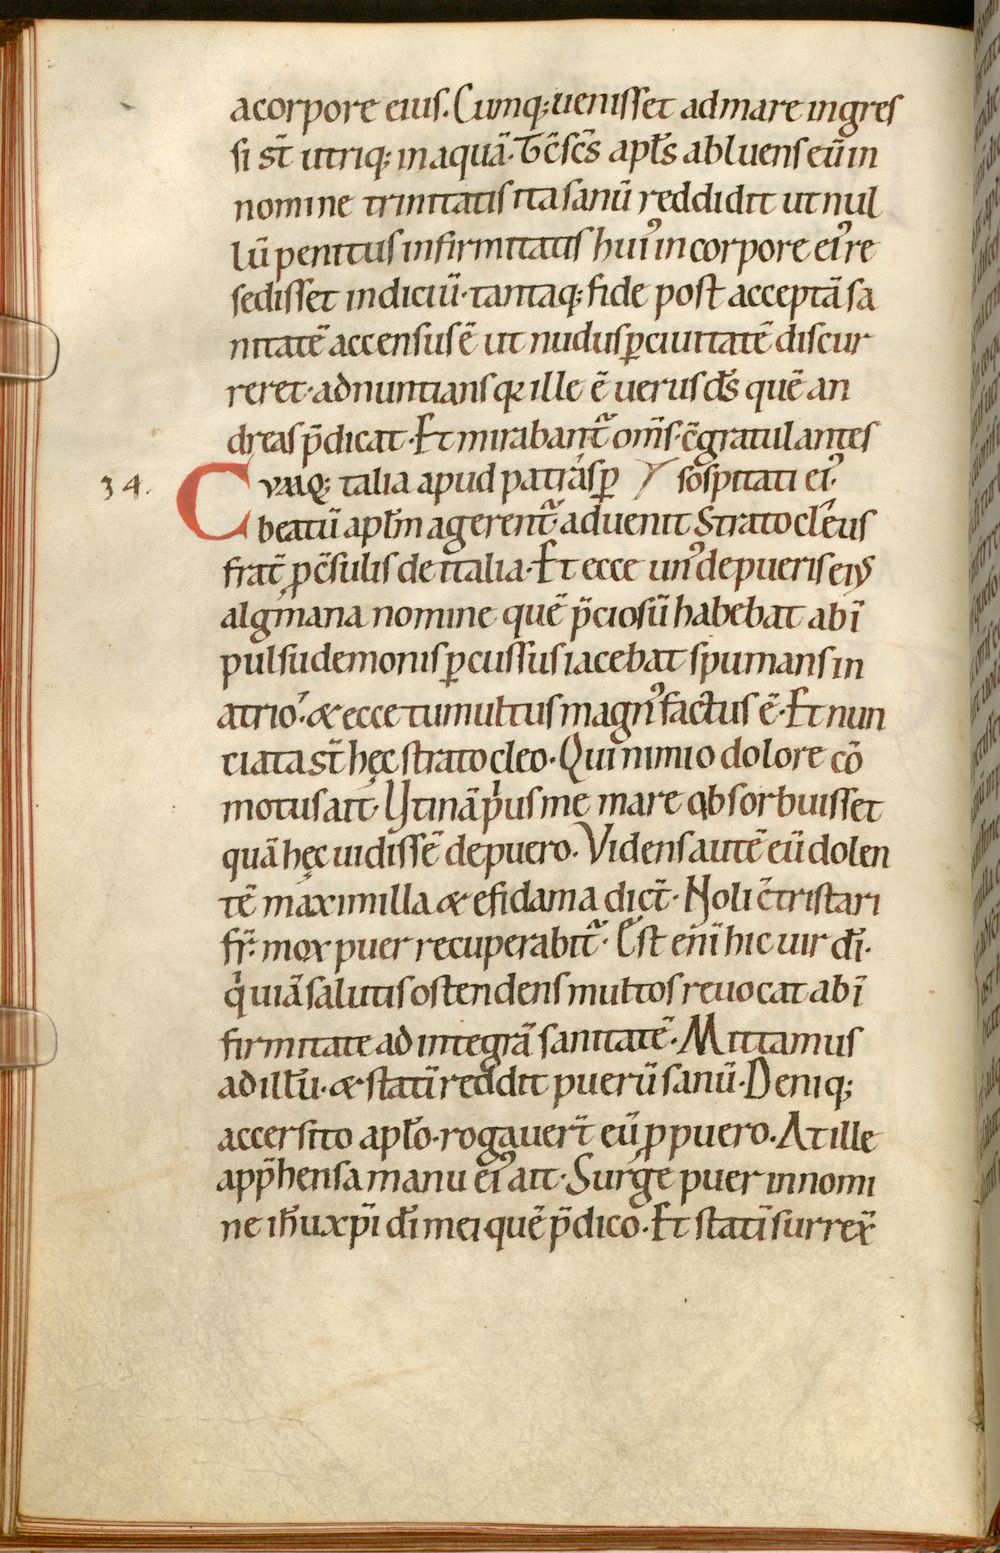 a corpore eius. Cumq; uenisset ad mare ingres
si st̄ utriq; in aquā. Tc̄ sc̄s apl̄s abluens eū in
nomine trinitatis ita sanū reddidit ut nul
lū penitus infirmitatis hui᾽ in corpore ei᾽ re
sedisset indiciū. tantaq; fide post acceptā sa
nitatē accensus ē ut nudus ꝑ ciuitatē discur
reret. adnuntians qꝛ ille ē uerus ds̄ quē an
dreas p̄dicat. Et mirabant᷑ om̄s. c̄gratulantes
34. CVMQ; talia apud patras ꝑ sospitati ei᾽.
beatū apl̄m agerent᷑. aduenit Stratocleus
frat̄ ꝓc̄sulis de italia. Et ecce un᾽ de pueris eiꝰ
algmana nomine quē p̄ciosū habebat ab ī
pulsu demonis ꝑcussus iacebat spumans in
atrio. & ecce tumultus magn᾽ factus ē. Et nun
tiata st̄ hęc stratocleo. Qui nimio dolore cō
motus ait. Utinā pͥus me mare obsorbuisset
quā hęc uidissē de puero. Videns autē eū dolen
tē maximilla & efidama dic̄t. Noli c̄tristari
fr̄. mox puer recuperabit᷑. Est enī hic uir dī.
qͥ uiā salutis ostendens multos reuocat ab ī
firmitate ad integrā sanitatē. Mittamus
ad illū. & statī reddit puerū sanū. Deniq;
accersito apl̄o. rogauer̄t eū ꝓ puero. At ille
app̄hensa manu ei᾽ ait. Surge puer in nomi
ne ih̄u xp̄i dī mei quē p̄dico. Et statī surrex̄